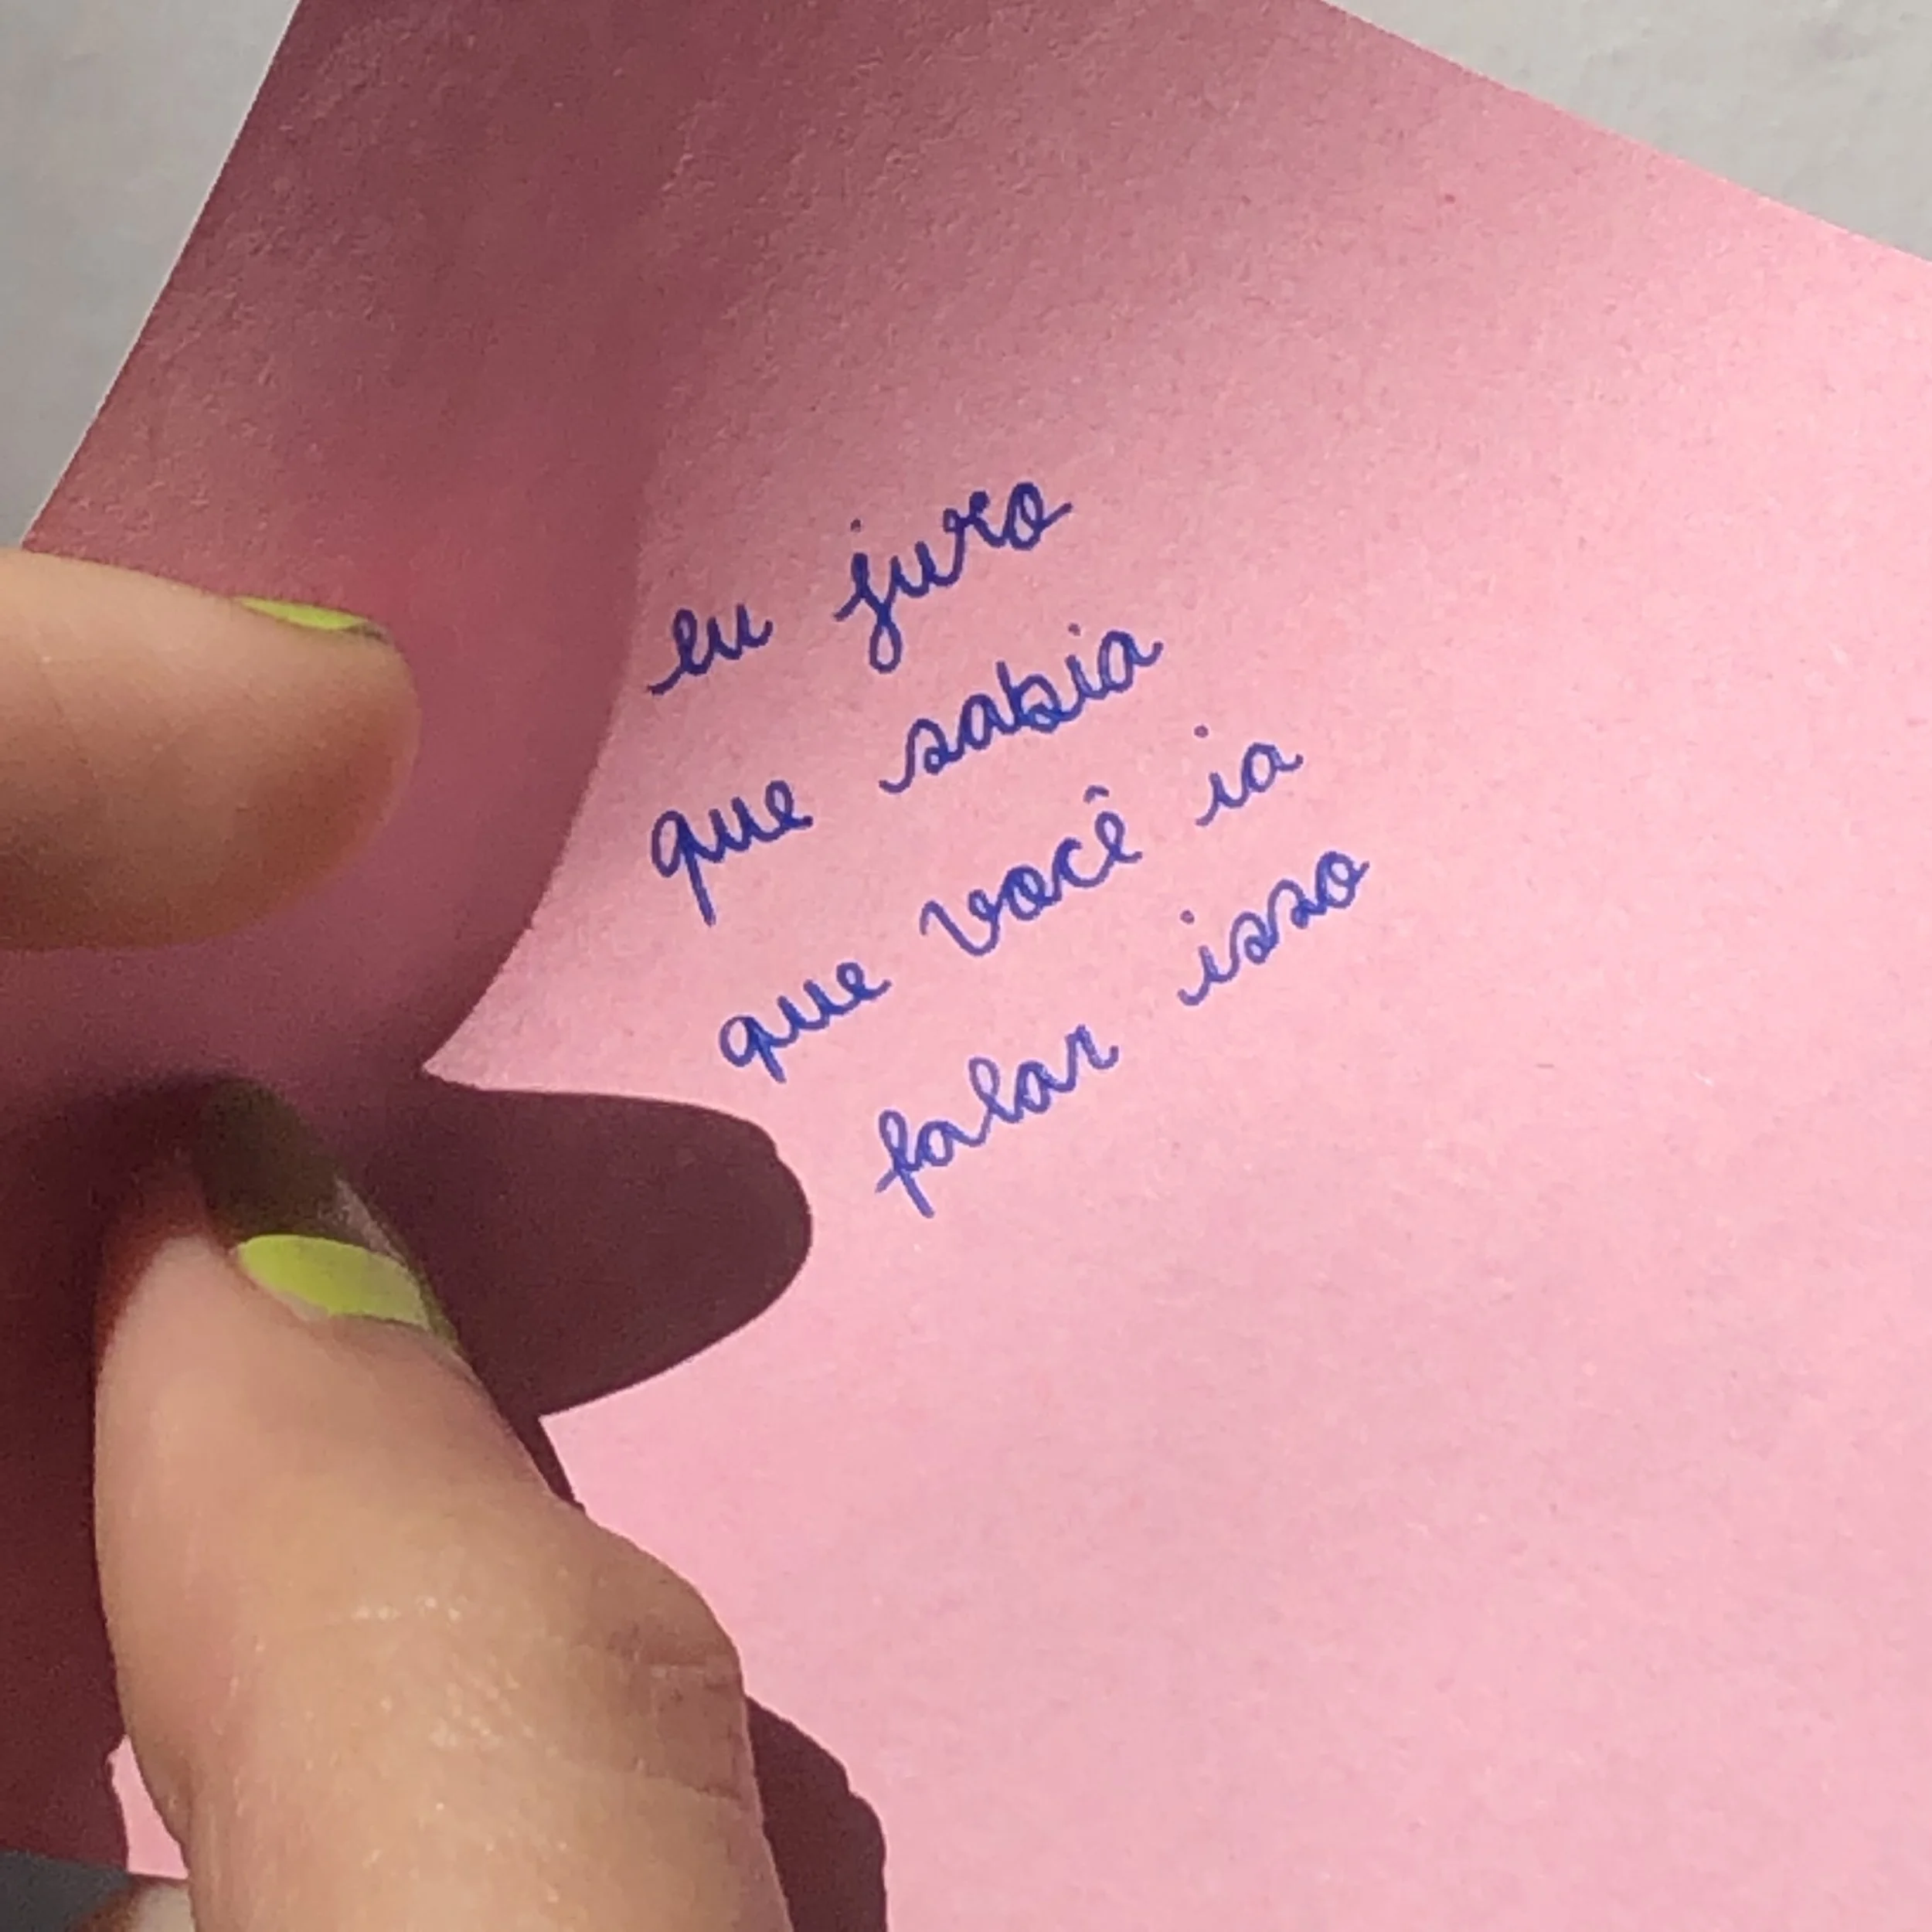 eu juro
que sabia
que você ia
falar isso